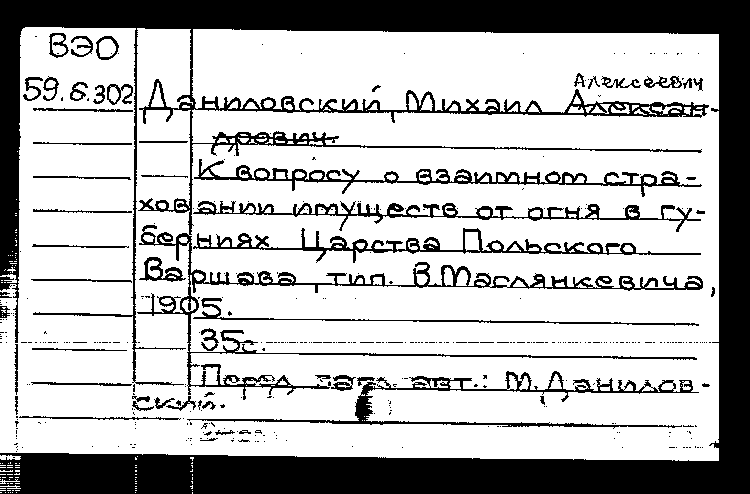 ВЭО
Алексеевич
59.6.302 Даниловский, Михаил Алексан-
дрович.
К вопросу о взаимном стра-
ховании имуществ от огня в гу-
берниях Царства Польского.
Варшава, тип. В.Маслянкевича,
1905.
35с.
Перед загл. авт.: М.Данилов-
ский.